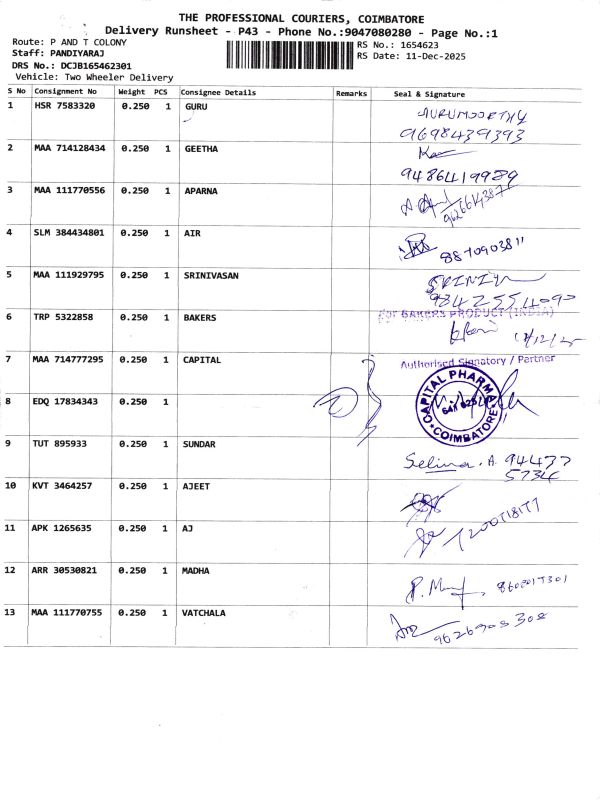 THE PROFESSIONAL COURIERS, COIMBATORE
Delivery Runsheet - P43 - Phone No.:9047080280 - Page No.:1
Route: P AND T COLONY
RS No.: 1654623
Staff: PANDIYARAJ
RS Date: 11-Dec-2025
DRS No.: DCJB165462301
Vehicle: Two Wheeler Delivery
S No Consignment No Weight PCS Consignee Details Remarks Seal & Signature
1 HSR 7583320 0.250 1 GURU
GURUMOORTHY
9698439393
2 MAA 714128434 0.250 1 GEETHA
9486419989
3 MAA 111770556 0.250 1 APARNA
4 SLM 384434801 0.250 1 AIR
8870903811
5 MAA 111929795 0.250 1 SRINIVASAN
6 TRP 5322858 0.250 1 BAKERS
For BAKERS PRODUCT (INDIA)
Authorised Signatory / Partner
7 MAA 714777295 0.250 1 CAPITAL
CAPITAL PHARMA
641 025
COIMBATORE
8 EDQ 17834343 0.250 1
9 TUT 895933 0.250 1 SUNDAR
Selina. A 94437
5734
10 KVT 3464257 0.250 1 AJEET
11 APK 1265635 0.250 1 AJ
12 ARR 30530821 0.250 1 MADHA
13 MAA 111770755 0.250 1 VATCHALA